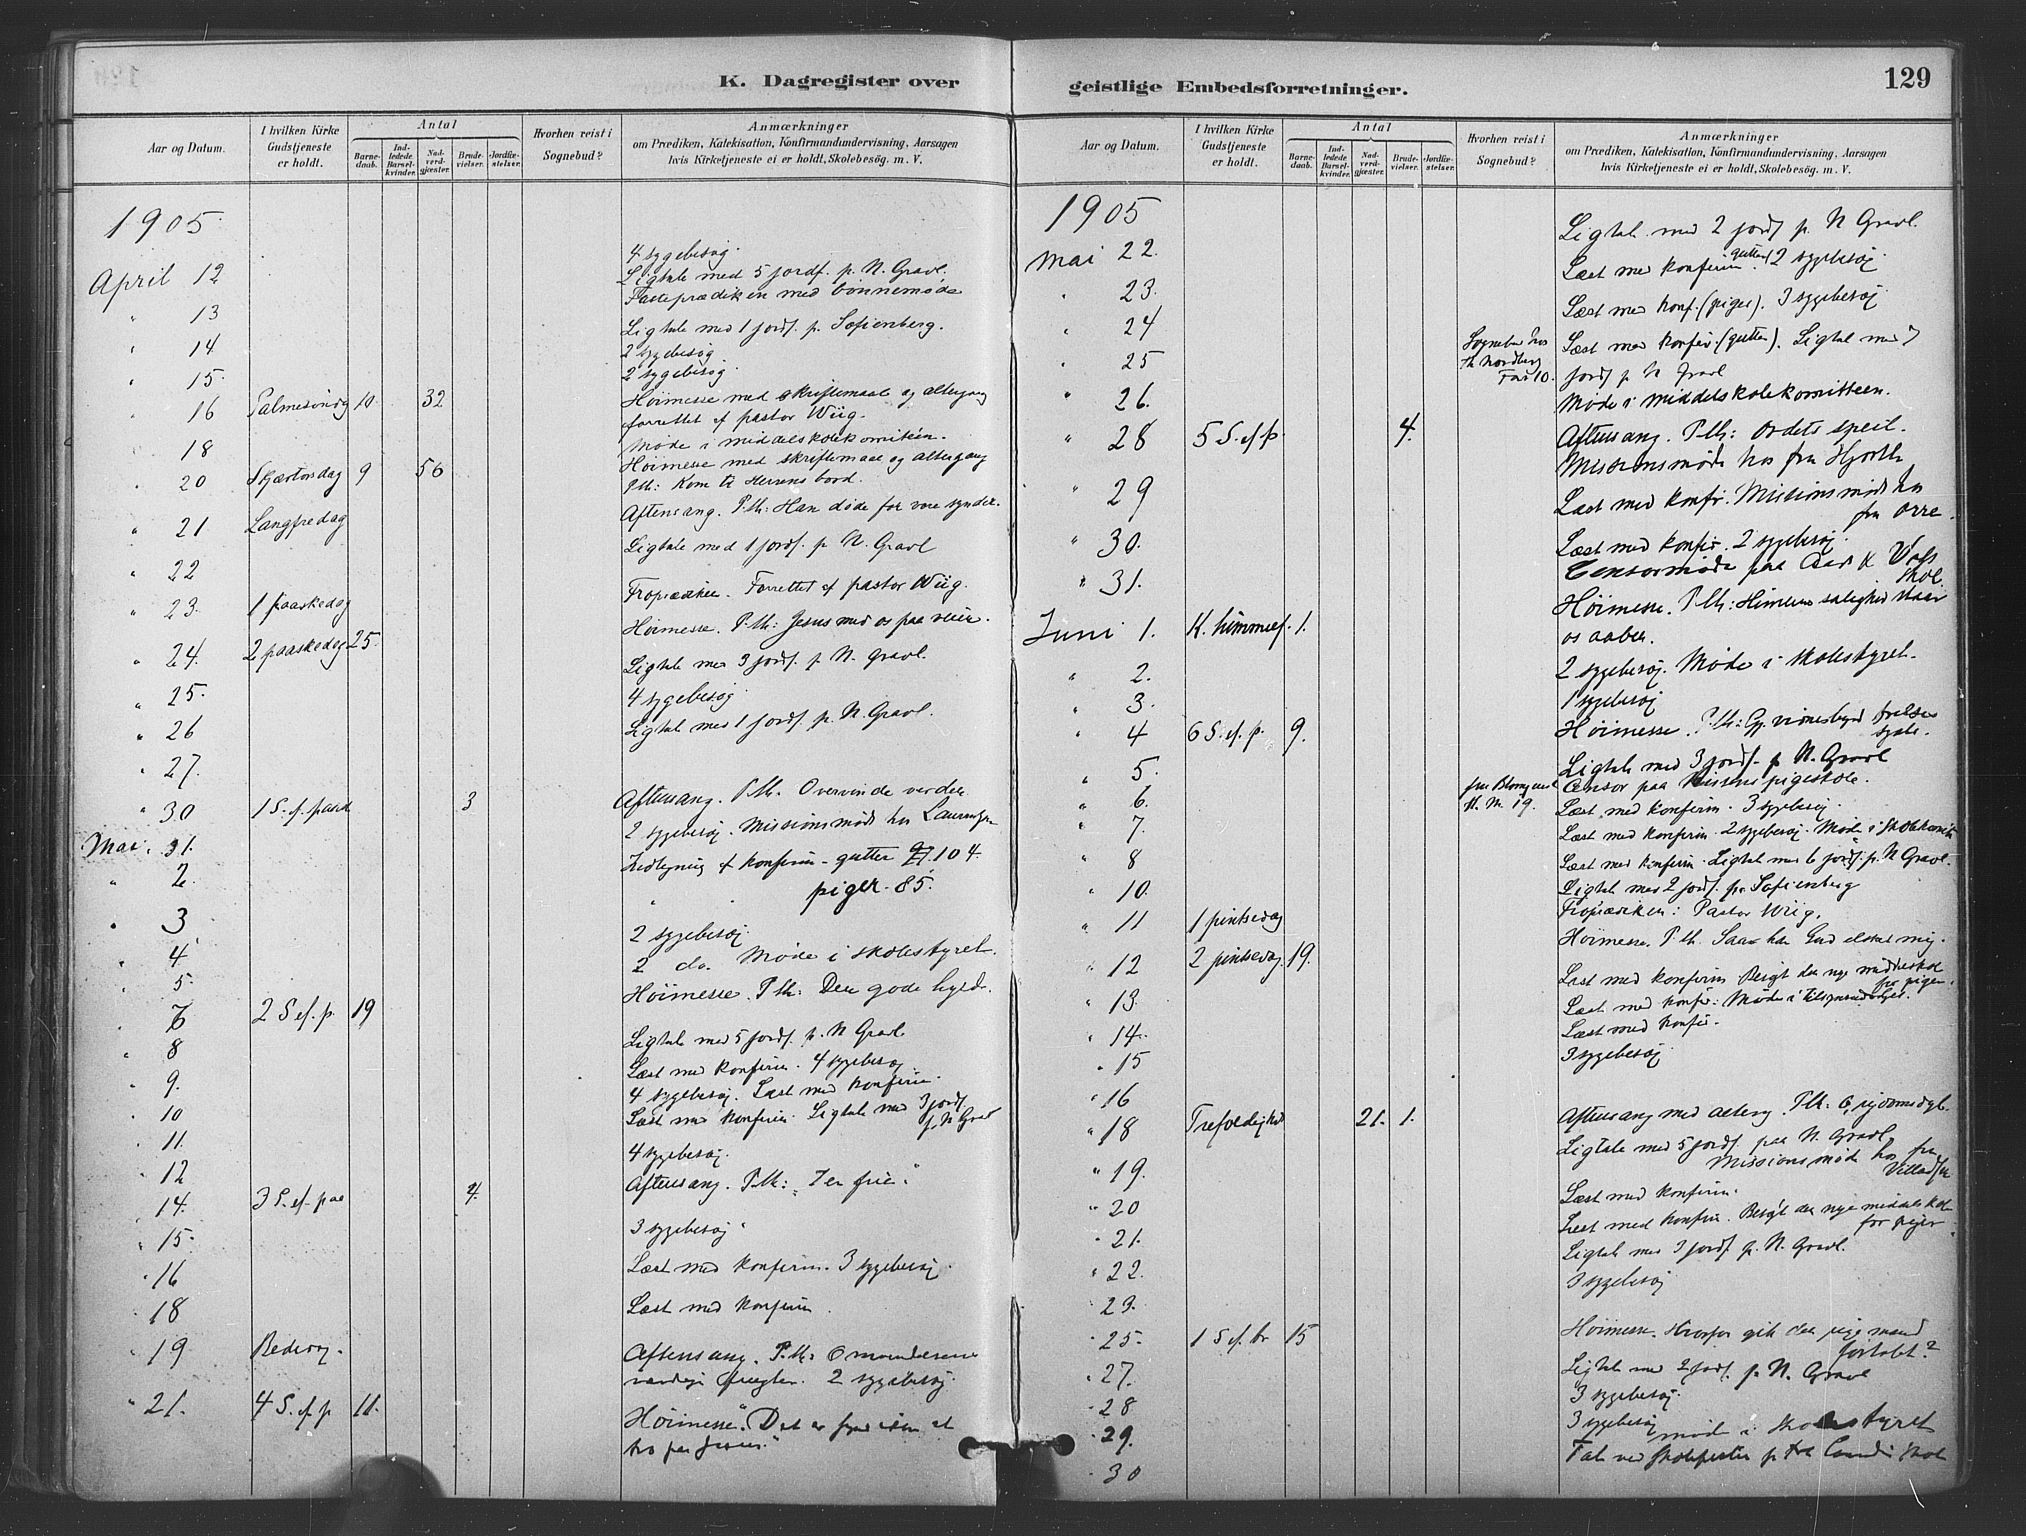 K. Dagregister over
Aar og Datum.
I hvilken Kirke Gudstjeneste er holdt.
Antal
Barnedaab.
Indledede Barselkvinder.
Nadverdgjæster.
Brudevielser.
Jordfæstelser.
Hvorhen reist i Sognebud?
Anmærkninger
om Prædiken, Katekisation, Konfirmandundervisning, Aarsagen
hvis Kirketjeneste ei er holdt, Skolebesög. m. V.
1905
4 sygebesøg.
April 12 Ligtale med 5 jordf. p. N. Gravl.
Fasteprædiken med bønnemøde
" 13 Ligtale med 1 jordf. p. Sofienberg.
" 14 2 sygebesøg
" 15 2 sygebesøg.
" 16 Palmesøndg 10 32 Høimesse med skriftemaal og altergang
forrettet af pastor Wiig.
" 18 Møde i middelskolekomiteen.
" 20 Skjærtorsdag 9 56 Høimesse med skriftemaal og altergang
Pth: Kom til Herrens bord.
" 21 Langfredag Aftensang. Pth: Han døde for vore synder.
" 22 Ligtale med 1 jordf. p. N. Gravl
" 23. 1 paaskedag Froprædiken. Forrettet af pastor Wiig.
" 24. 2 paaskedag 25. Høimesse. Pth: Jesus med os paa veien.
" 25. Ligtale med 3 jordf. p. N. Gravl.
" 26 4 sygebesøg
" 27. Ligtale med 1 jordf. p. N. Gravl.
" 30 1 S. ef. paask 3 Aftensang. Pth. Overvinde verden
Mai 1. 2 sygebesøg. Missionsmøde hos
" 2. Indtegning af konfirm - gutter 104.
" piger. 85.
" 3 2 sygebesøg.
" 4 2 do. Møde i skolestyret.
" 5.
" 7 2 S. ef. p. 19 Høimesse. Pth: Den gode hyrde.
" 8 Ligtale med 5 jordf. p. N Gravl
" 9. Læst med konfirm. 4 sygebesøg
" 10 4 sygebesøg. Læst med konfirm.
" 11. Læst med konfirm. Ligtale med 3 jordf.
p. N Gravl
" 12 4 sygebesøg.
" 14. 3 S. ef. paa 4. Aftensang. Pth: "I er frie."
" 15. 3 sygebesøg
" 16 Læst med konfirm. 3 sygebesøg.
" 18 Læst med konfirm.
" 19 Bededag. Aftensang. Pth: Omvendelsens
værdige frugter. 2 sygebesøg.
" 21. 4 S. ef. p 11. Høimesse. "Det er synden at
tro paa Jesus."
geistlige Embedsforretninger.
129
Aar og Datum.
I hvilken Kirke Gudstjeneste er holdt.
Antal
Barnedaab.
Indledede Barselkvinder.
Nadverdgjæster.
Brudevielser.
Jordfæstelser.
Hvorhen reist i Sognebud?
Anmærkninger
om Prædiken, Katekisation, Konfirmandundervisning, Aarsagen
hvis Kirketjeneste ei er holdt, Skolebesög. m. V.
1905
Mai 22. Ligtale med 2 jordf. p. N Gravl.
" 23. Læst med konfirm. gutter 2 sygebesøg.
" 24 Læst med konf. (piger). 3 sygebesøg
" 25 Sognebud hos Læst med konfir. (gutter). Ligtale med 7
jordf p. N Gravl
" 26. Møde i middelskolekomitteen.
" 28 5 S. ef. p. 4. Aftensang. Pth: Ordets speil.
Missionsmøde hos fru Hjorth
" 29 Læst med konfir. Missionsmøde hos
fru Orre.
" 30. Læst med konfir. 2 sygebesøg.
" 31. Censormøde paa Aars & Voss skole.
Juni 1. K. himmelf. 1. Høimesse. Pth: Himlens salighed staar
os aaben.
" 2. 2 sygebesøg. Møde i skolestyret.
" 3. 1 sygebesøg
" 4 6 S. ef. p. 9. Høimesse. Pth:
" 5. Ligtale med 3 jordf. p N. Gravl
" 6. Censor paa pigeskole.
" 7. Læst med konfirm. 3 sygebesøg.
" 8 Læst med konfirm. 2 sygebesøg. Møde i
Læst med konfirm. Ligtale med 6 jordf. p. N Gravl.
" 10. Ligtale med 2 jordf. p. Sofienberg
" 11 1 pintsedag Froprædiken: Pastor Wiig.
" 12 2 pintsedag. 19. Høimesse. Pth. Saa har Gud elsket mig.
" 13. Læst med konfirm. Besigt. den nye middelskole
for piger.
" 14. Læst med konfir: Møde i tilsynsudvalget.
" 15 Læst med konfir.
" 16 3 sygebesøg.
" 18 Trefoldighed 21. 1. Aftensang med alterg. Pth:
" 19. Ligtale med 5 jordf. paa N. Gravl
Missionsmøde hos fru
" 20 Læst med konfirm.
" 21. Læst med konfir. Besigt den nye middelskole
for piger.
" 22. Ligtale med 3 jordf. p. N. Gravl.
" 23. 3 sygebesøg
" 25. 1 S. ef. tr 15 Høimesse. Hvorfor gik den rige mand
fortabt?
" 27. Ligtale med 2 jordf. p. N. Gravl
" 28 3 sygebesøg.
" 29. 3 sygebesøg møde i skolestyret
" 30 Tale ved skolefesten p.